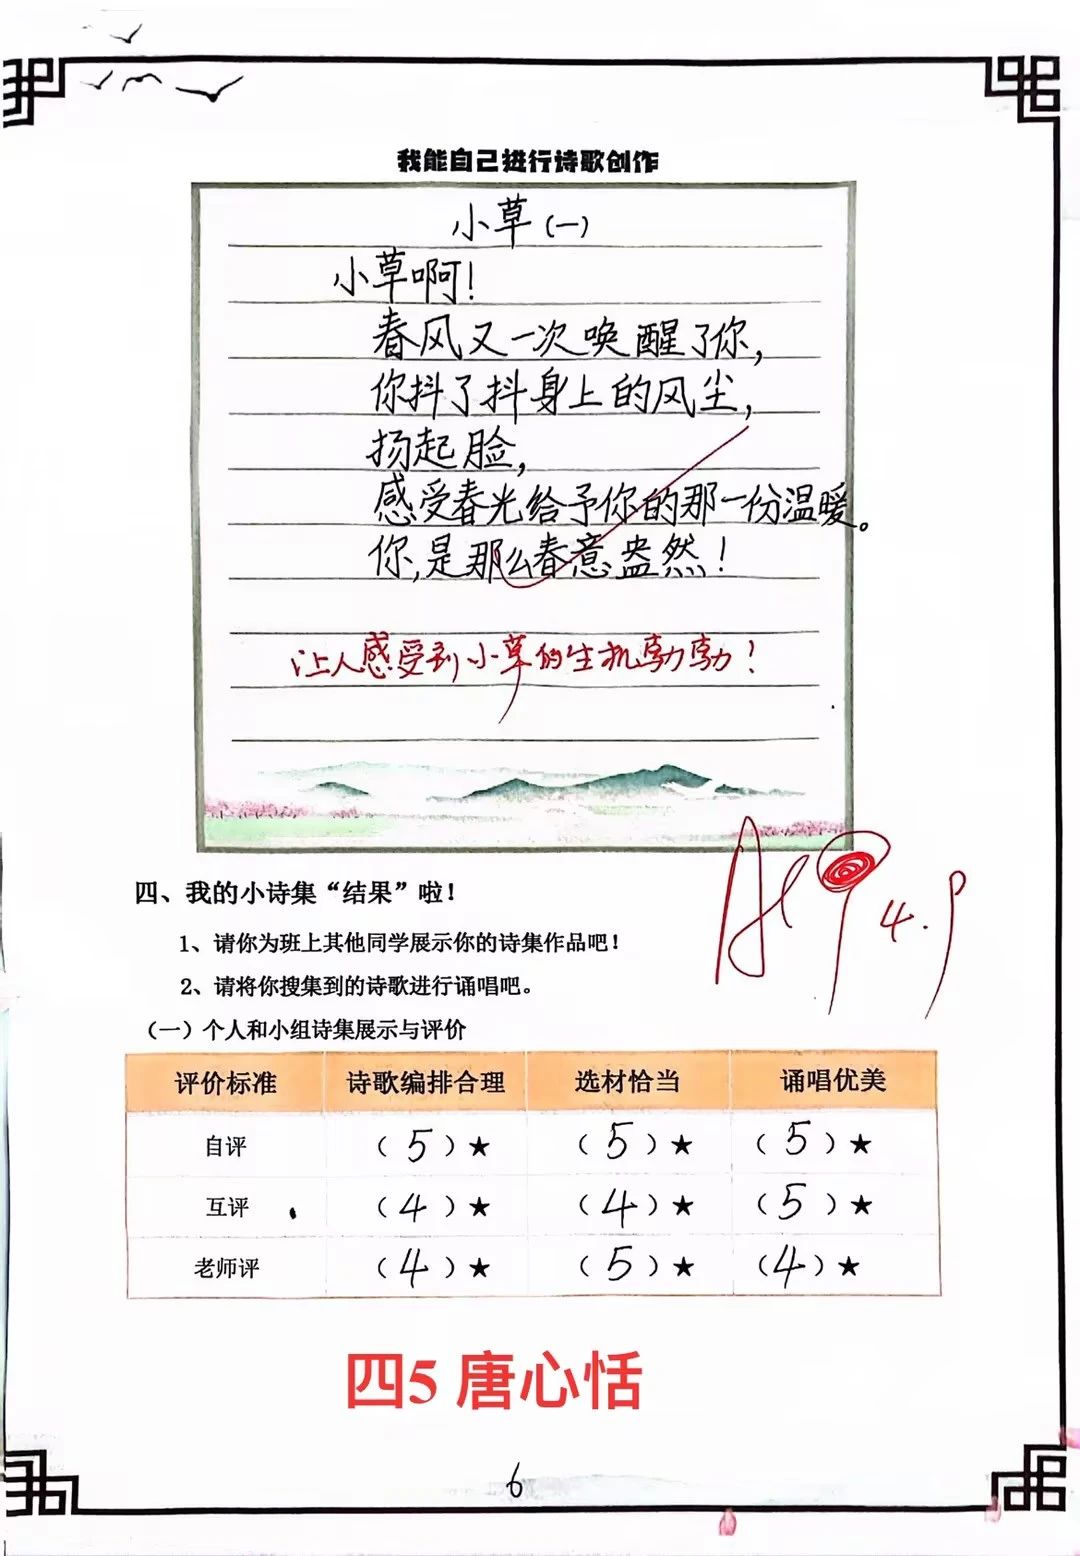 我能自己进行诗歌创作
小草(一)
小草啊!
春风又一次唤醒了你,
你抖了抖身上的风尘,
扬起脸,
感受春光给予你的那一份温暖。
你,是那么春意盎然!
让人感受到小草的生机勃勃!
4.9
四、我的小诗集“结果”啦!
1、请你为班上其他同学展示你的诗集作品吧!
2、请将你搜集到的诗歌进行诵唱吧。
(一)个人和小组诗集展示与评价
评价标准 诗歌编排合理 选材恰当 诵唱优美
自评 (5)★ (5)★ (5)★
互评 (4)★ (4)★ (5)★
老师评 (4)★ (5)★ (4)★
四5 唐心恬
6